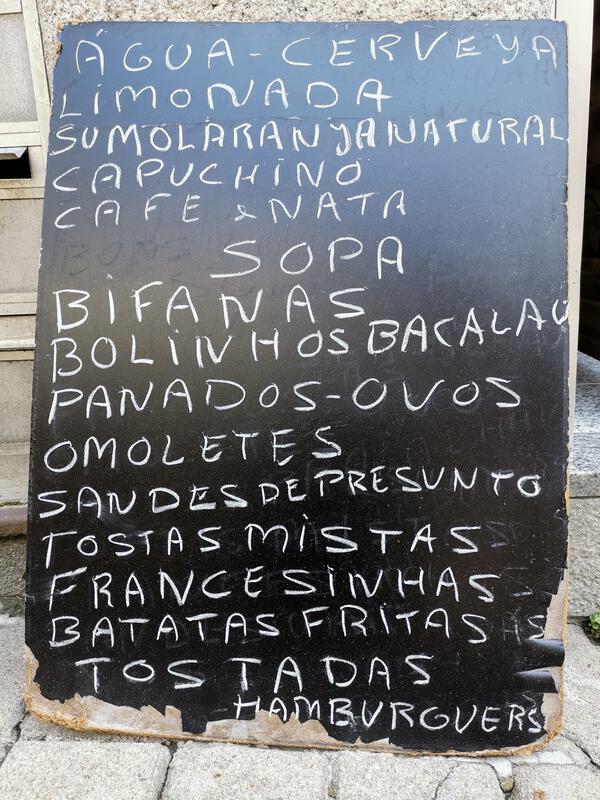 ÁGUA-CERVEYA
LIMONADA
SUMOLARANYANATURAL
CAPUCHINO
CAFE & NATA
SOPA
BIFANAS
BOLINHOS BACALAU
PANADOS-OVOS
OMOLETES
SANDES DE PRESUNTO
TOSTAS MISTAS
FRANCESINHAS
BATATAS FRITAS
TOSTADAS
HAMBURGUERS